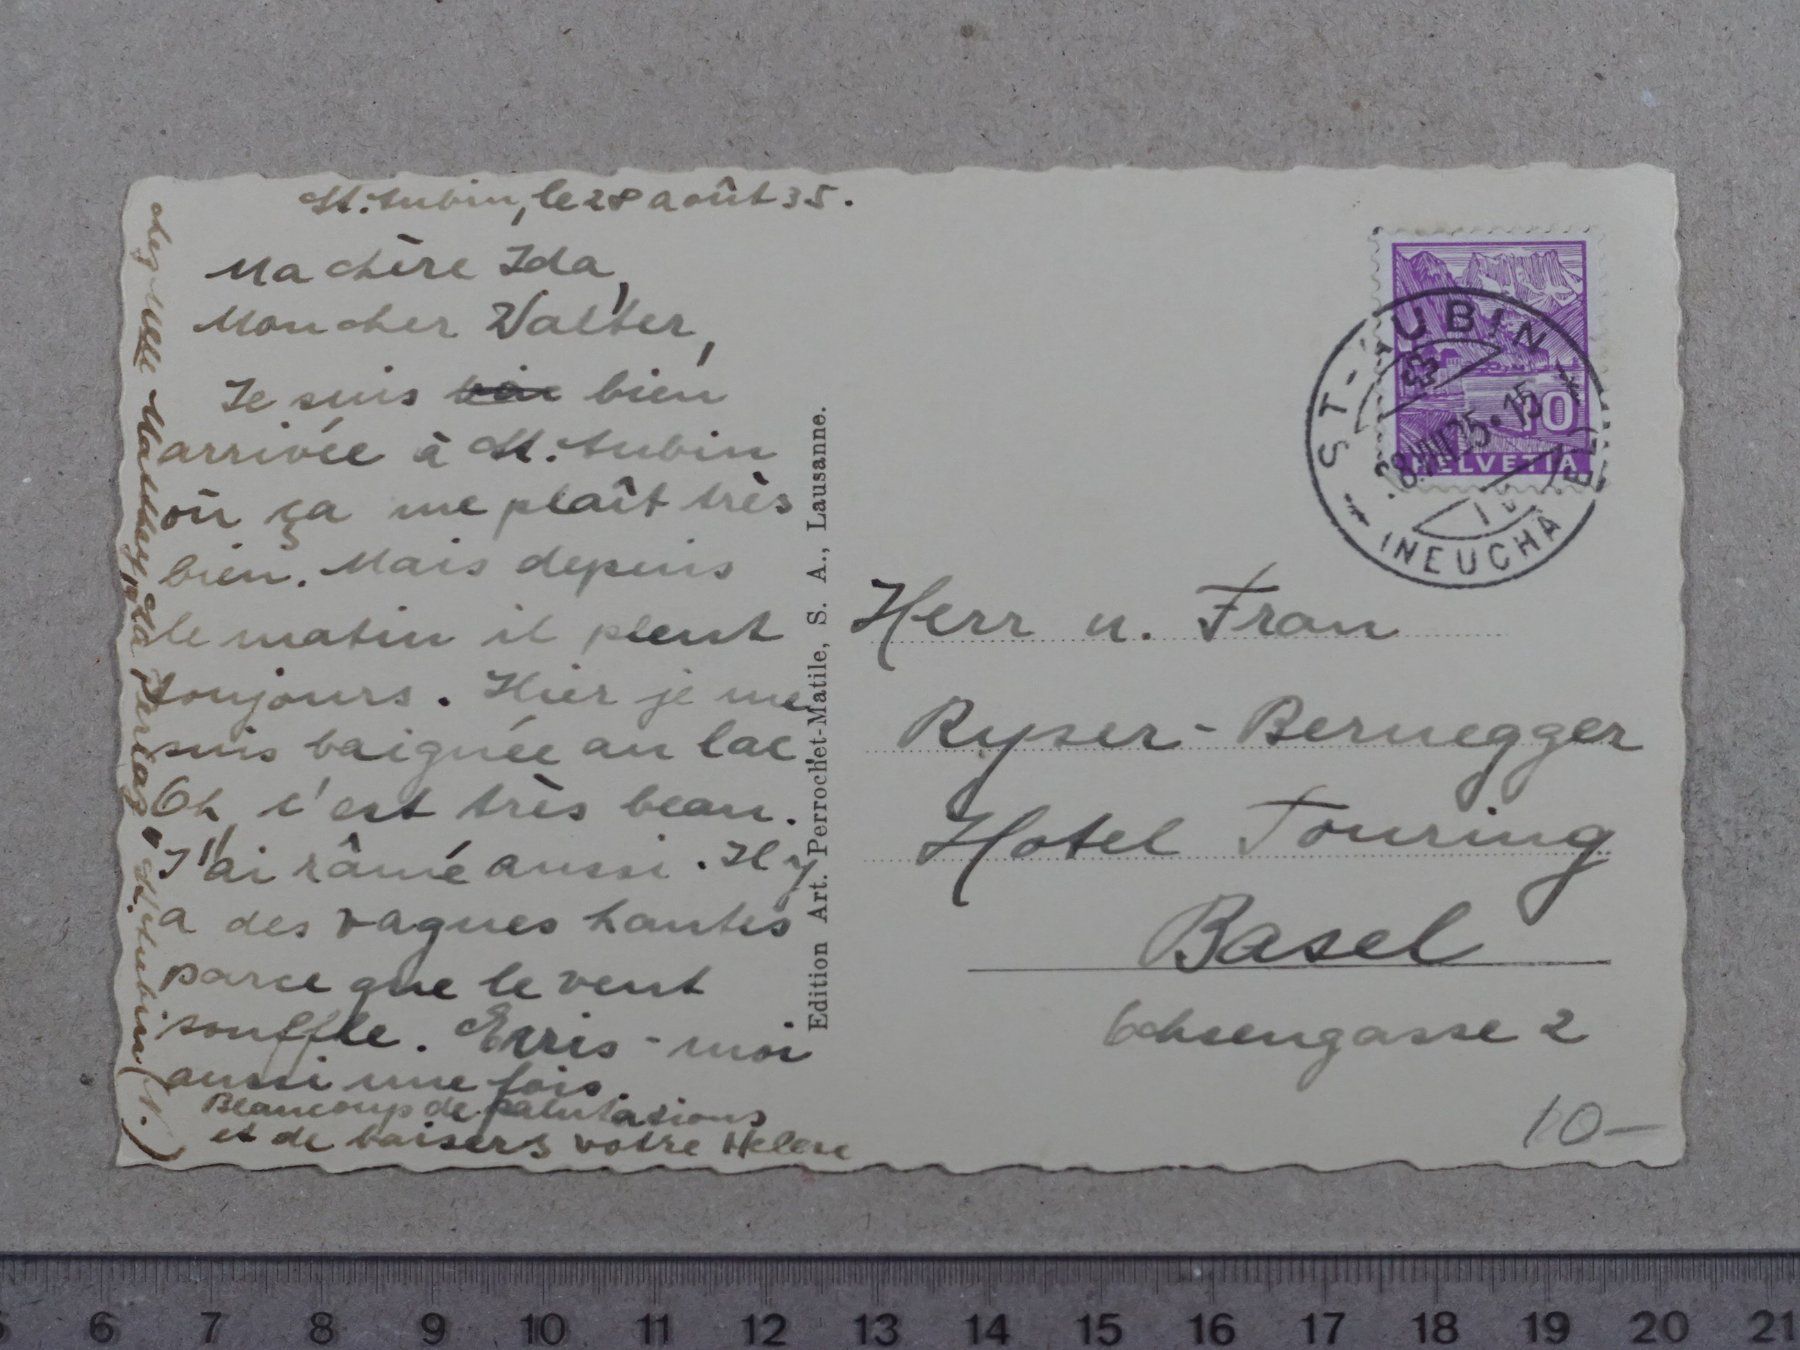 St. Aubin, le 28 août 35.
Ma chère Ida,
Mon cher Walter,
Je suis bien
arrivée à St. Aubin
où ça me plaît très
bien. Mais depuis
le matin il pleut
toujours. Hier je me
suis baignée au lac.
Oh, c'est très beau.
J'ai râmé aussi. Il y
a des vagues hautes
parce que le vent
souffle. Ecris-moi
aussi une fois.
Beaucoup de salutations
et de baisers votre Helene
chez Melle Matthey, La Perlaz, St. Aubin (N.)
Edition Art. Perrochet-Matile, S. A., Lausanne.
HELVETIA
10
ST-AUBIN
(NEUCHÂTEL)
28.VIII.35.15
Herr u. Frau
Ryser-Bernegger
Hotel Touring
Basel
Ochsengasse 2
10—
5 6 7 8 9 10 11 12 13 14 15 16 17 18 19 20 21